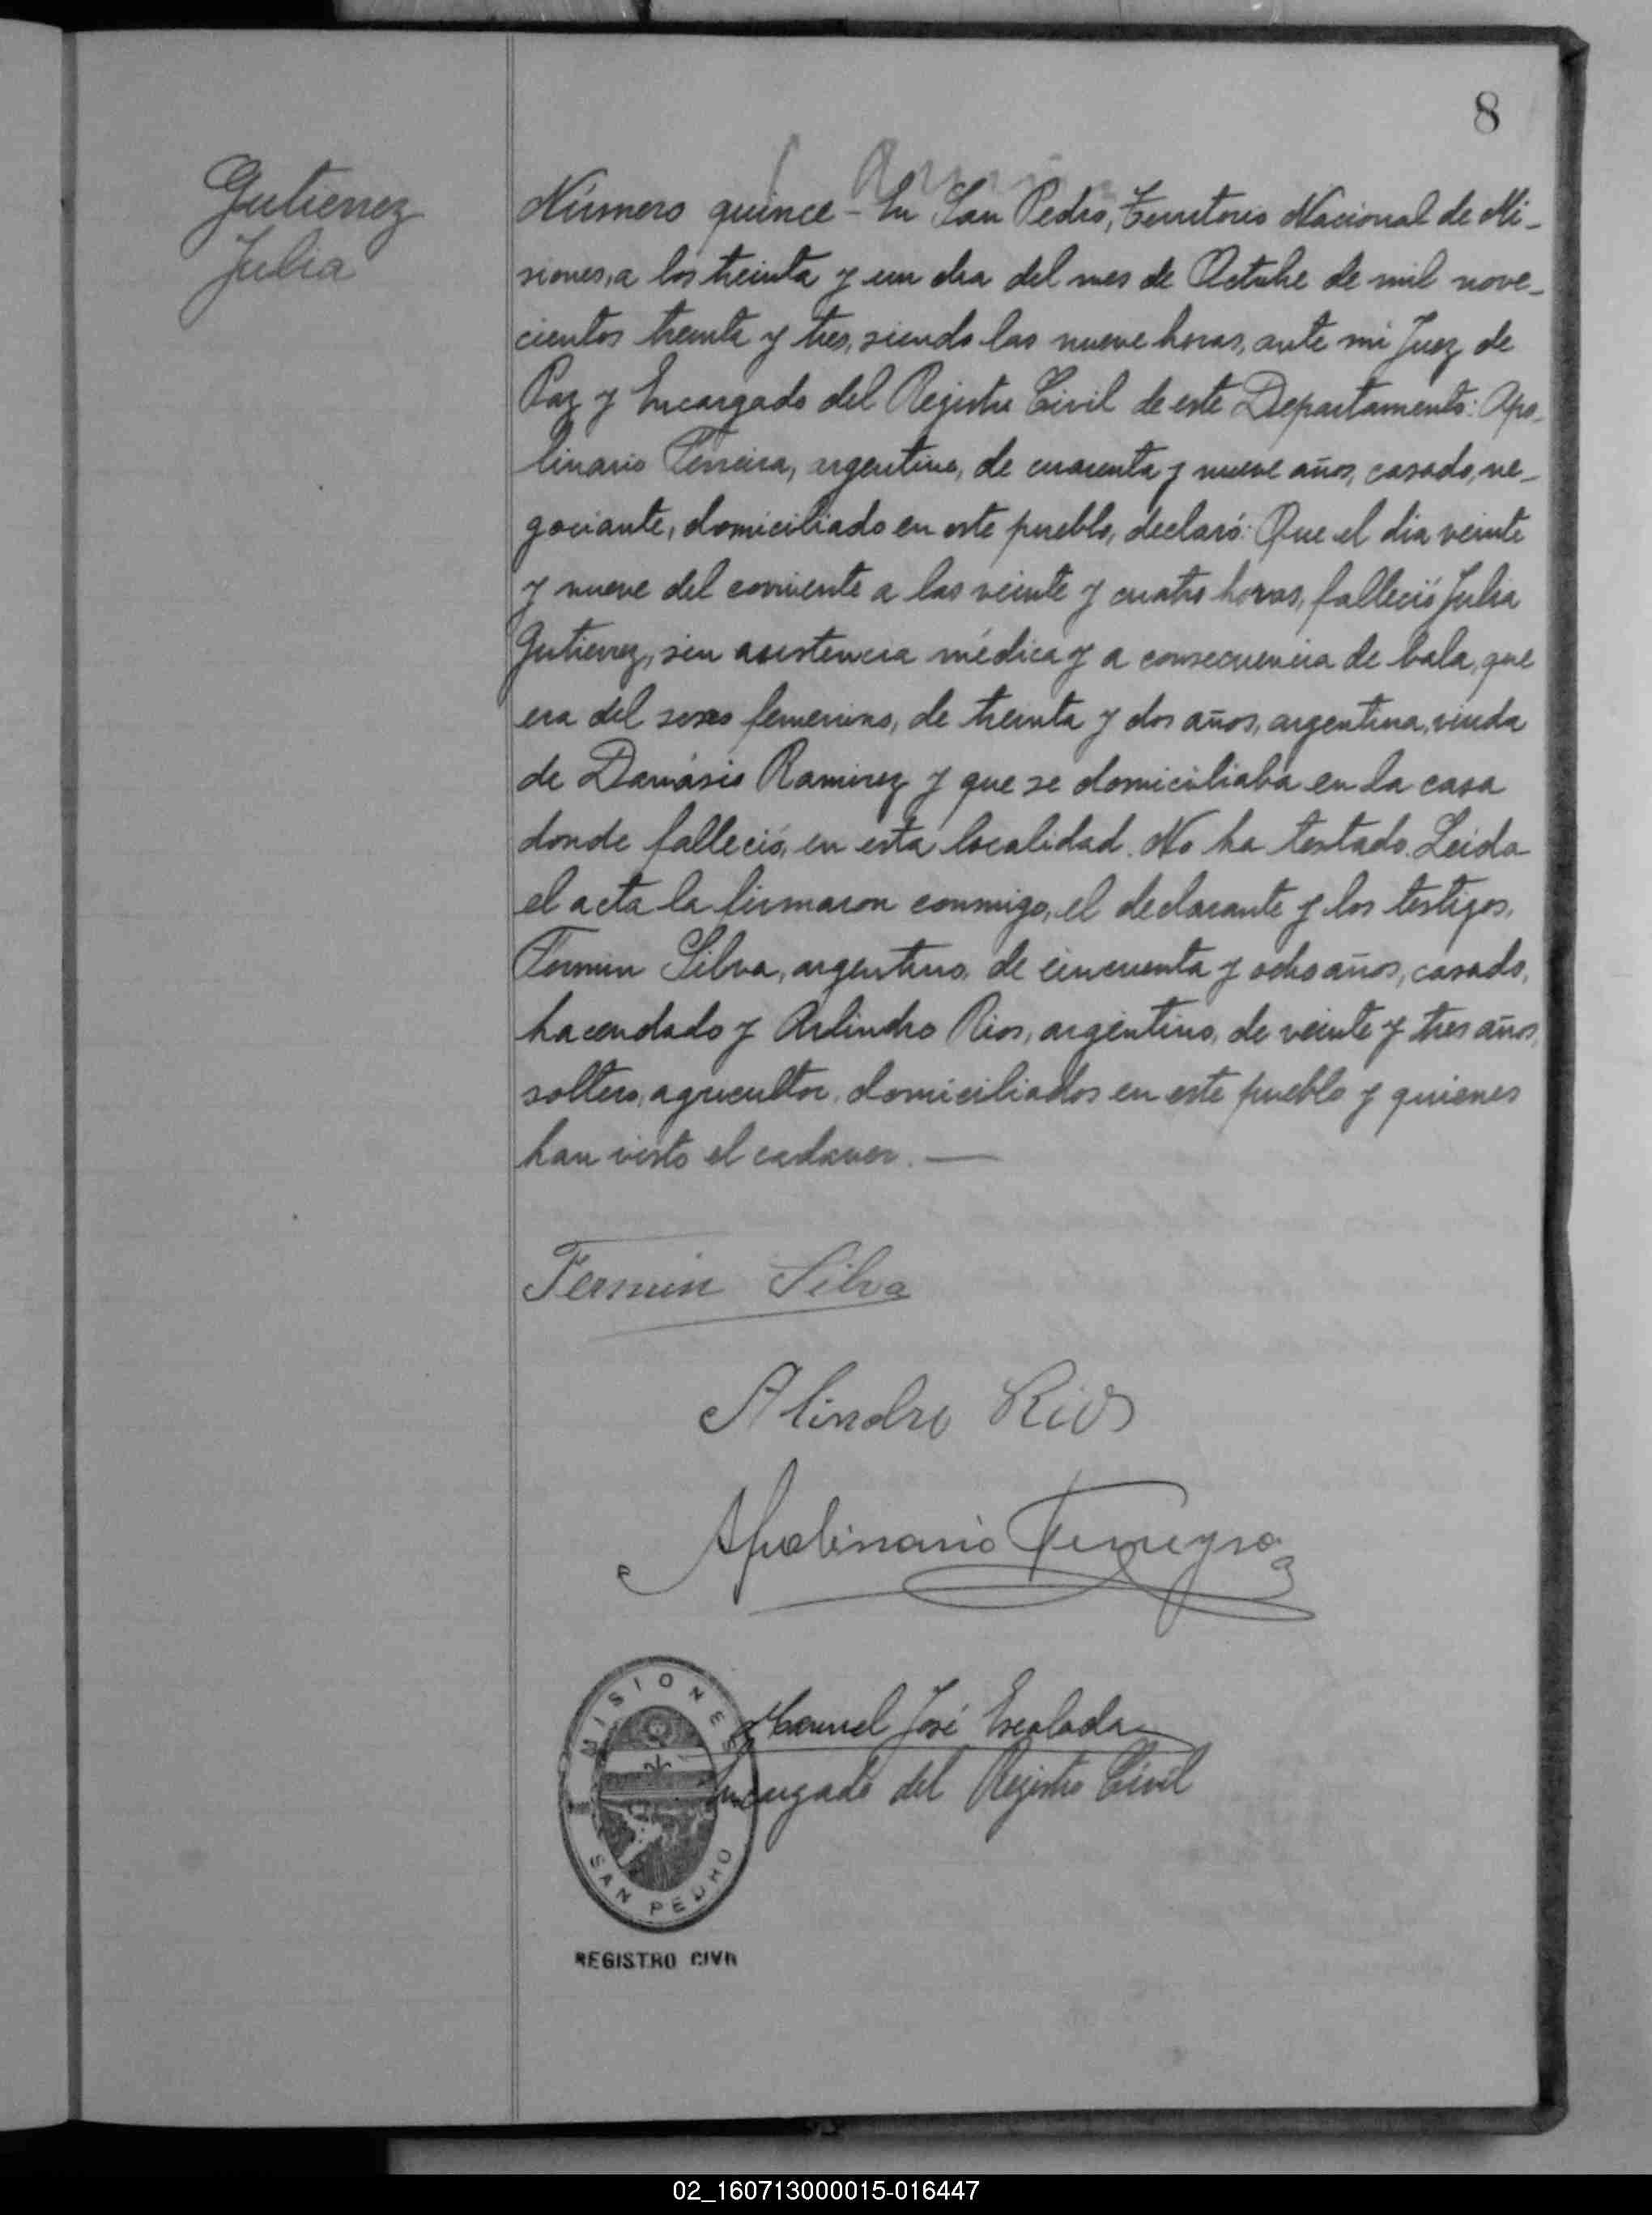 8
Gutierrez
Julia
Número quince - En San Pedro, Territorio Nacional de Mi-
siones, a los treinta y un dia del mes de Octubre de mil nove-
cientos treinta y tres, siendo las nueve horas, ante mi Juez de
Paz y Encargado del Registro Civil de este Departamento: Apo-
linario Ferreira, argentino, de cuarenta y nueve años, casado, ne-
gociante, domiciliado en este pueblo, declaró: Que el dia veinte
y nueve del corriente a las veinte y cuatro horas, falleció Julia
Gutierrez, sin asistencia médica y a consecuencia de bala, que
era del sexo femenino, de treinta y dos años, argentina, viuda
de Damásio Ramirez y que se domiciliaba en la casa
donde falleció, en esta localidad. No ha testado. Leida
el acta la firmaron conmigo, el declarante y los testigos,
Fermin Silva, argentino, de cincuenta y ocho años, casado,
hacendado y Arlindro Rios, argentino, de veinte y tres años,
soltero, agricultor, domiciliados en este pueblo y quienes
han visto el cadaver. —
Fermin Silva
Alindro Rios
Apolinario Ferreyra
Manuel José Escalada
Encargado del Registro Civil
MISIONES
SAN PEDRO
REGISTRO CIVIL
02_160713000015-016447